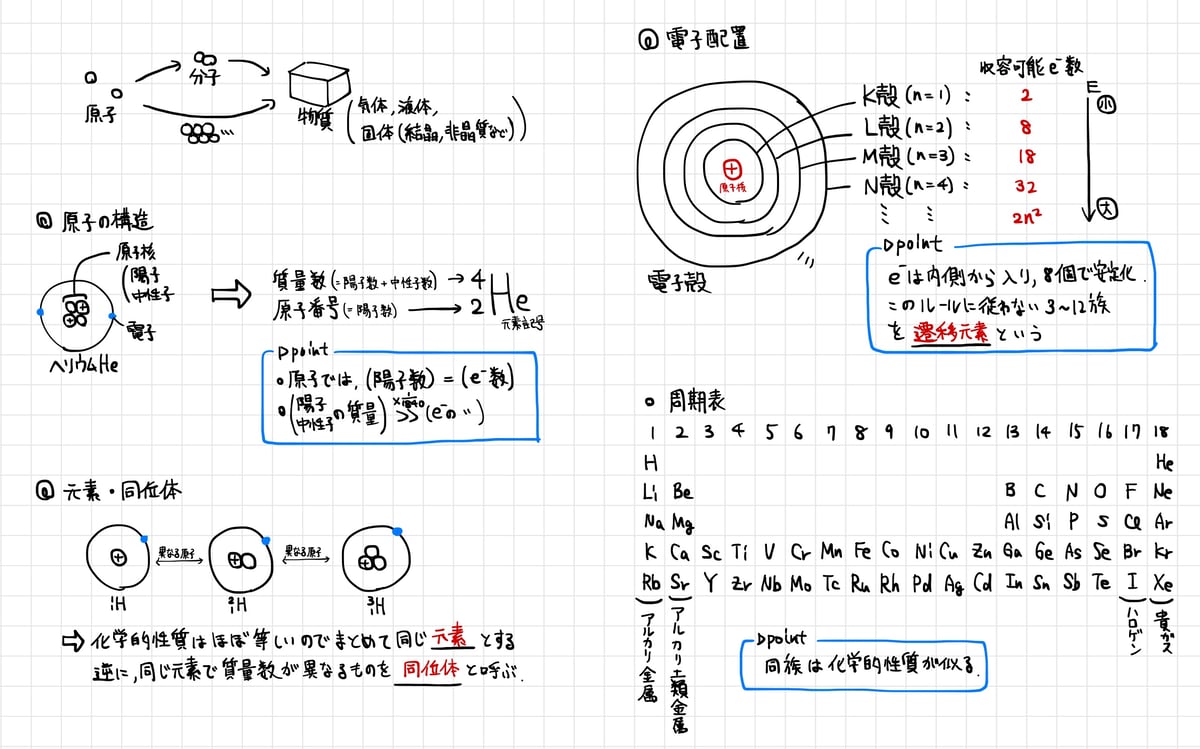 原子
分子
物質
(気体, 液体,
固体(結晶, 非晶質など))
原子の構造
原子核
(陽子
中性子
電子
ヘリウムHe
質量数(=陽子数+中性子数) → 4
原子番号(=陽子数) → 2
He
元素記号
point
・原子では, (陽子数) = (e⁻数)
・(陽子 中性子の質量) ≫ (e⁻の 〃)
元素・同位体
異なる原子
異なる原子
¹₁H
²₁H
³₁H
⇒ 化学的性質はほぼ等しいのでまとめて同じ元素とする
逆に, 同じ元素で質量数が異なるものを 同位体 と呼ぶ.
電子配置
収容可能e⁻数
K殻(n=1) : 2
L殻(n=2) : 8
M殻(n=3) : 18
N殻(n=4) : 32
⋮ ⋮ 2n²
E
小
大
+
原子核
電子殻
point
e⁻は内側から入り, 8個で安定化.
このルールに従わない3~12族
を 遷移元素 という
周期表
1 2 3 4 5 6 7 8 9 10 11 12 13 14 15 16 17 18
H He
Li Be B C N O F Ne
Na Mg Al Si P S Cl Ar
K Ca Sc Ti V Cr Mn Fe Co Ni Cu Zn Ga Ge As Se Br Kr
Rb Sr Y Zr Nb Mo Tc Ru Rh Pd Ag Cd In Sn Sb Te I Xe
アルカリ金属
アルカリ土類金属
ハロゲン
貴ガス
point
同族は化学的性質が似る.